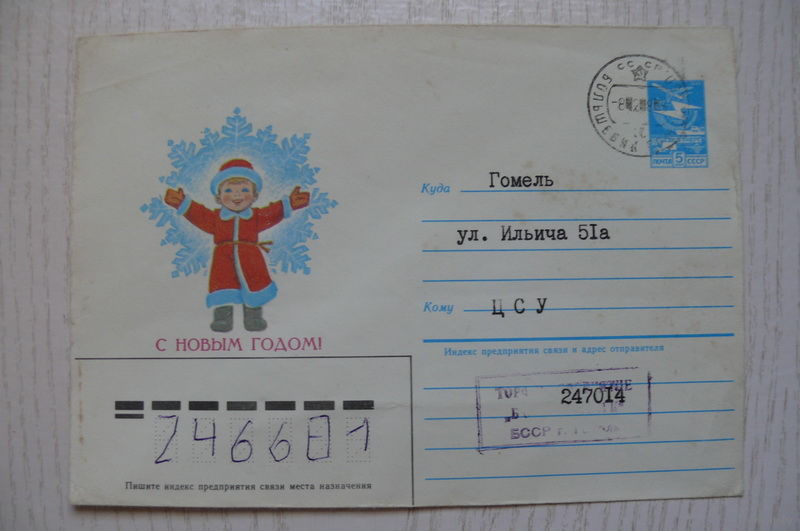 СССР
ПОЧТА 5 СССР
Куда Гомель
ул. Ильича 51а
Кому ЦСУ
Индекс предприятия связи и адрес отправителя
247014
БССР г.
С НОВЫМ ГОДОМ!
246681
Пишите индекс предприятия связи места назначения